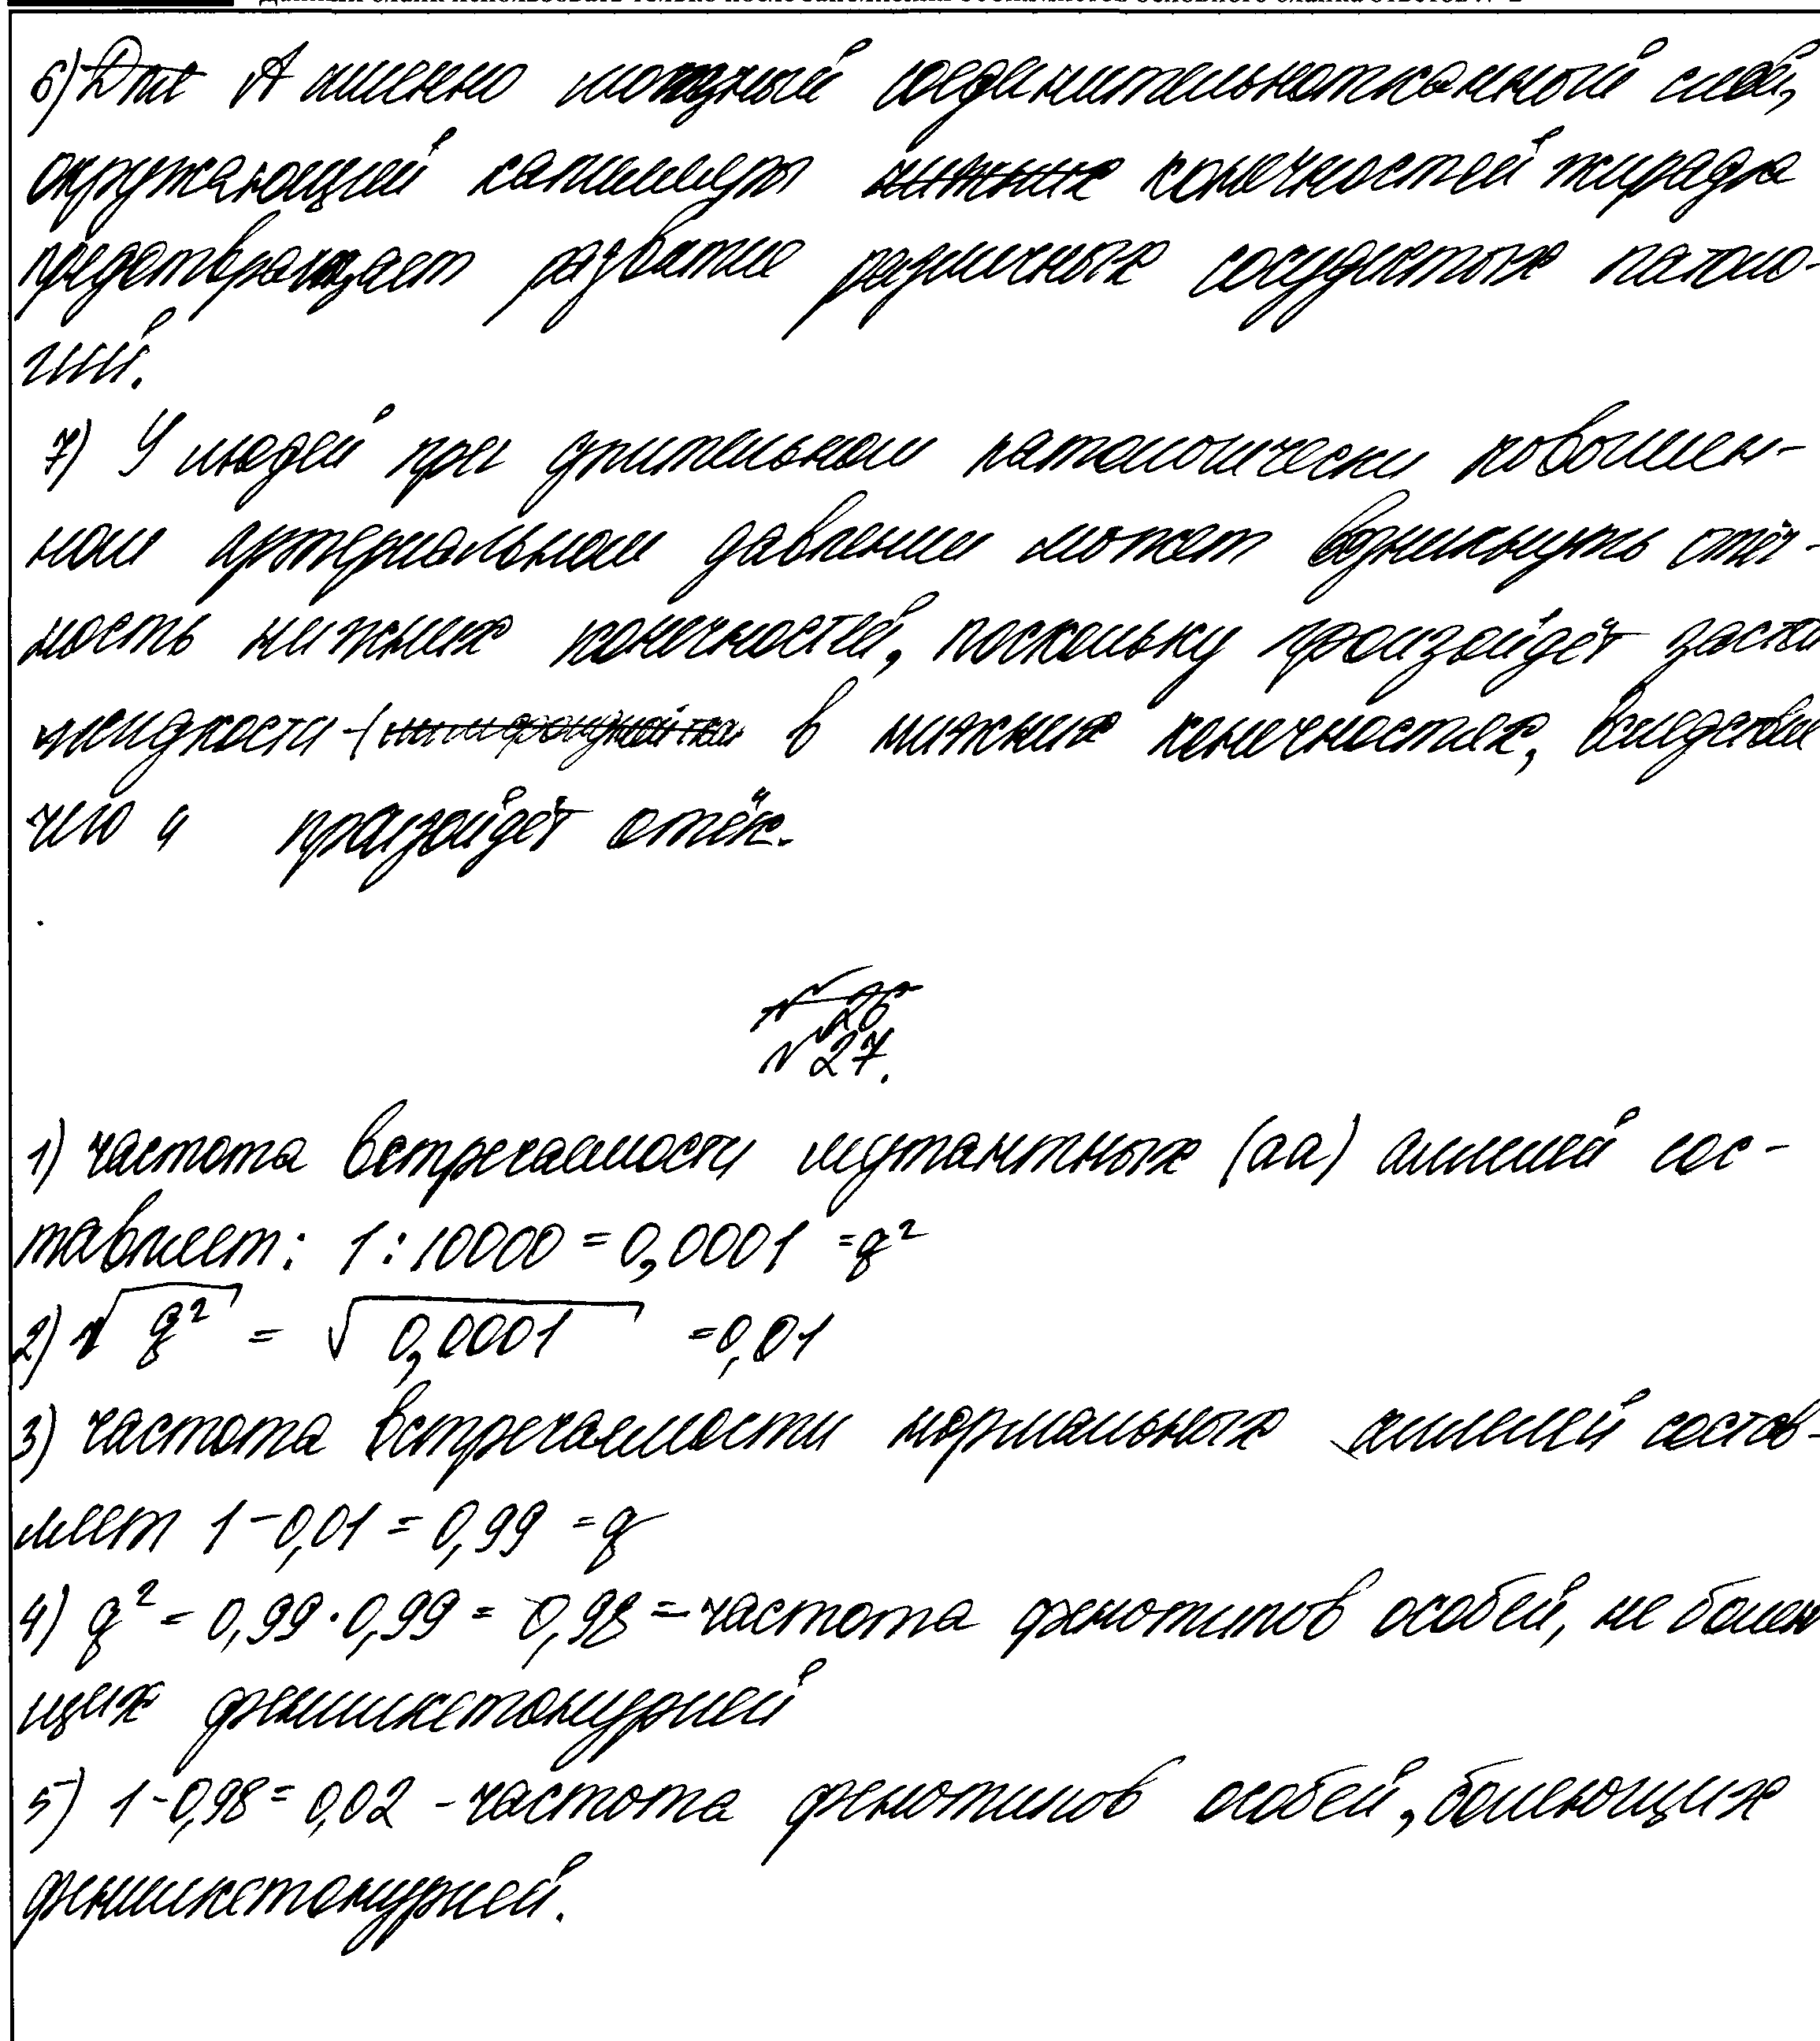 6) Для А именно мощный соединительнотканный слой,
окружающий капилляры нижних конечностей жирафа
предотвращает развитие различных сосудистых патоло-
гий.
7) У людей при длительном патологически повышен-
ном артериальном давлении может возникнуть отёч-
ность нижних конечностей, поскольку произойдёт
жидкости в нижних конечностях, вследствие
чего и произойдёт отёк.
№ 26
№ 27.
1) частота встречаемости мутантных (aa) аллелей сос-
тавляет: 1 : 10000 = 0,0001 = q²
2) √q² = √0,0001 = 0,01
3) частота встречаемости нормальных аллелей состав-
ляет 1 - 0,01 = 0,99 = q
4) q² = 0,99 · 0,99 = 0,98 = частота фенотипов особей, не болею
щих фенилкетонурией
5) 1 - 0,98 = 0,02 - частота фенотипов особей, болеющих
фенилкетонурией.